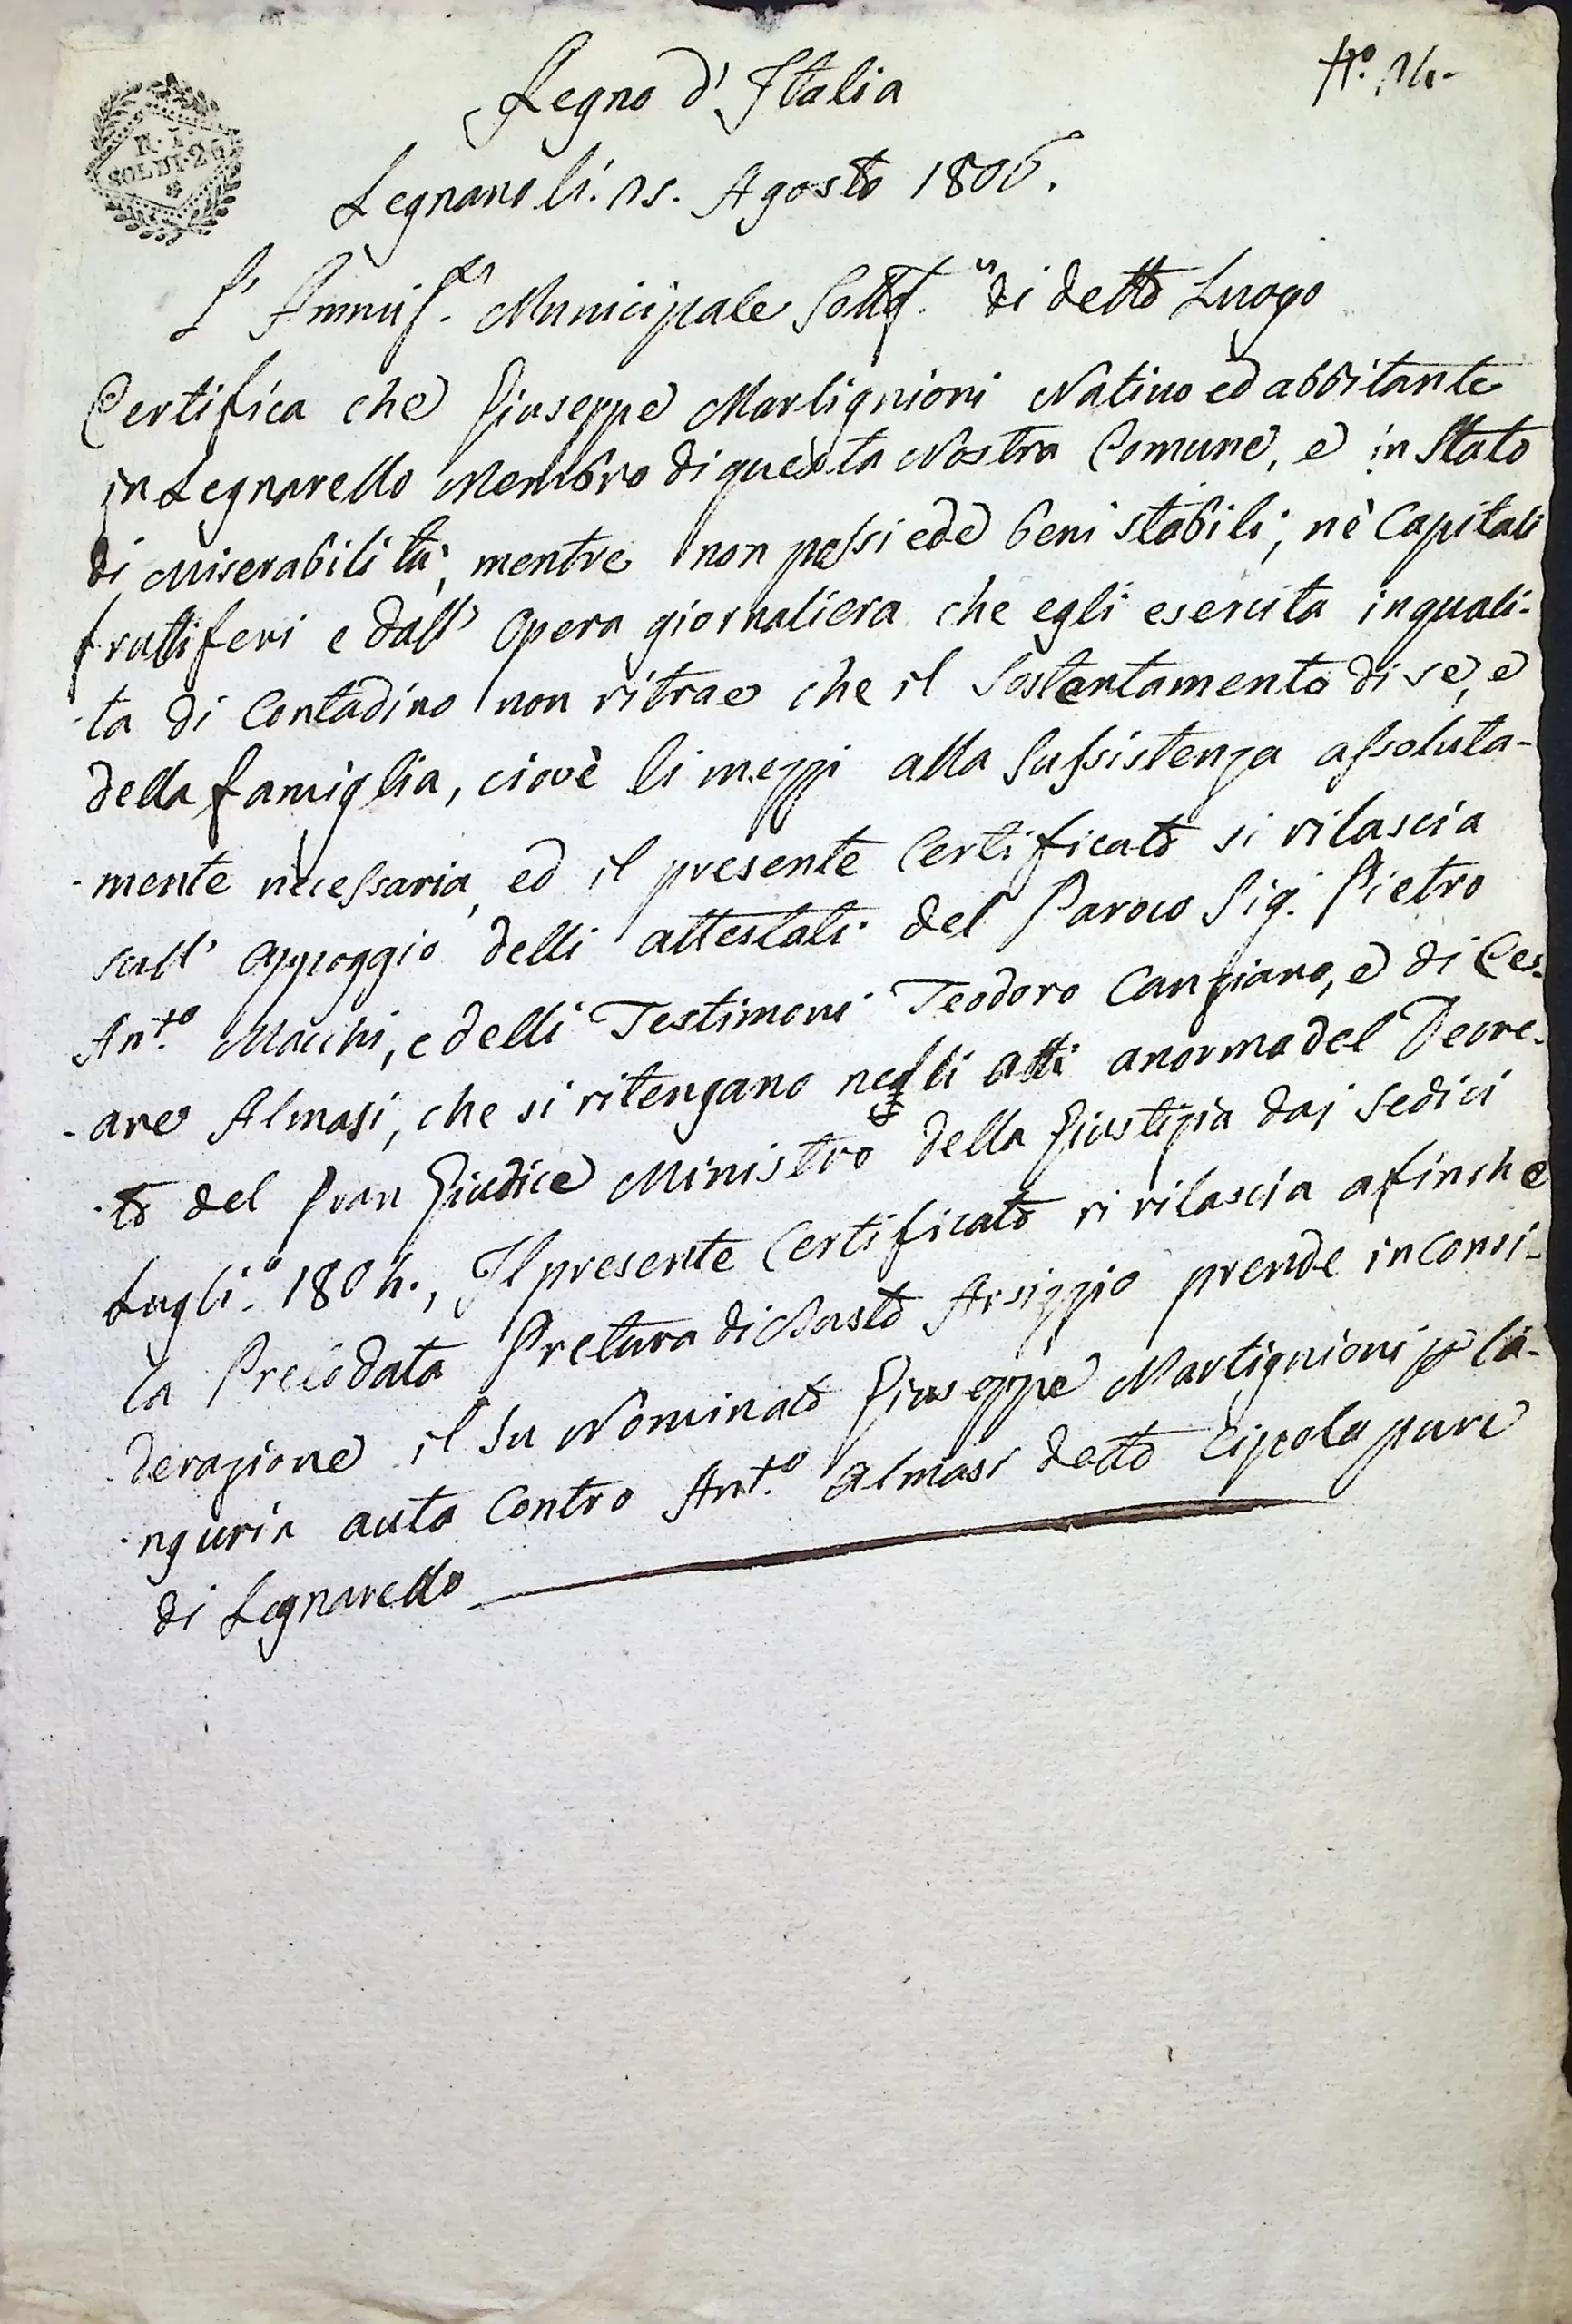 R. I.
SOLDI. 26
Nº. 14.
Regno d' Italia
Legnano li. 15. Agosto 1806.
L' Ammis.ne Municipale Sottos.ta di detto Luogo
Certifica che Giuseppe Martignioni Nativo ed abbitante
in Legnarello Membro di questa Nostra Comune, e in Stato
di Miserabilità, mentre non possiede beni stabili, nè Capitali
fruttiferi e dall' Opera giornaliera che egli esercita in quali-
-ta di Contadino non ritrae che il Sostentamento di se, e
della famiglia, ciovè li mezzi alla Sussistenza assoluta-
-mente necessaria, ed il presente Certificato si rilascia
sull' appoggio delli attestati del Paroco Sig. Pietro
Ant.o Macchi, e delli Testimoni Teodoro Canziano, e di Ces-
-are Almasi, che si ritengano negli atti anorma del Decre-
-to del Gran Giudice Ministro della Giustizia dai Sedici
Lugli.o 1804., Il presente Certificato si rilascia afinche
la Prelodata Pretura di Busto Arsizzio prende in Consi-
-derazione il Su Nominato Giuseppe Martignioni p la-
-nguria auta Contro Ant.o Almasi detto Cipola pure
di Legnarello